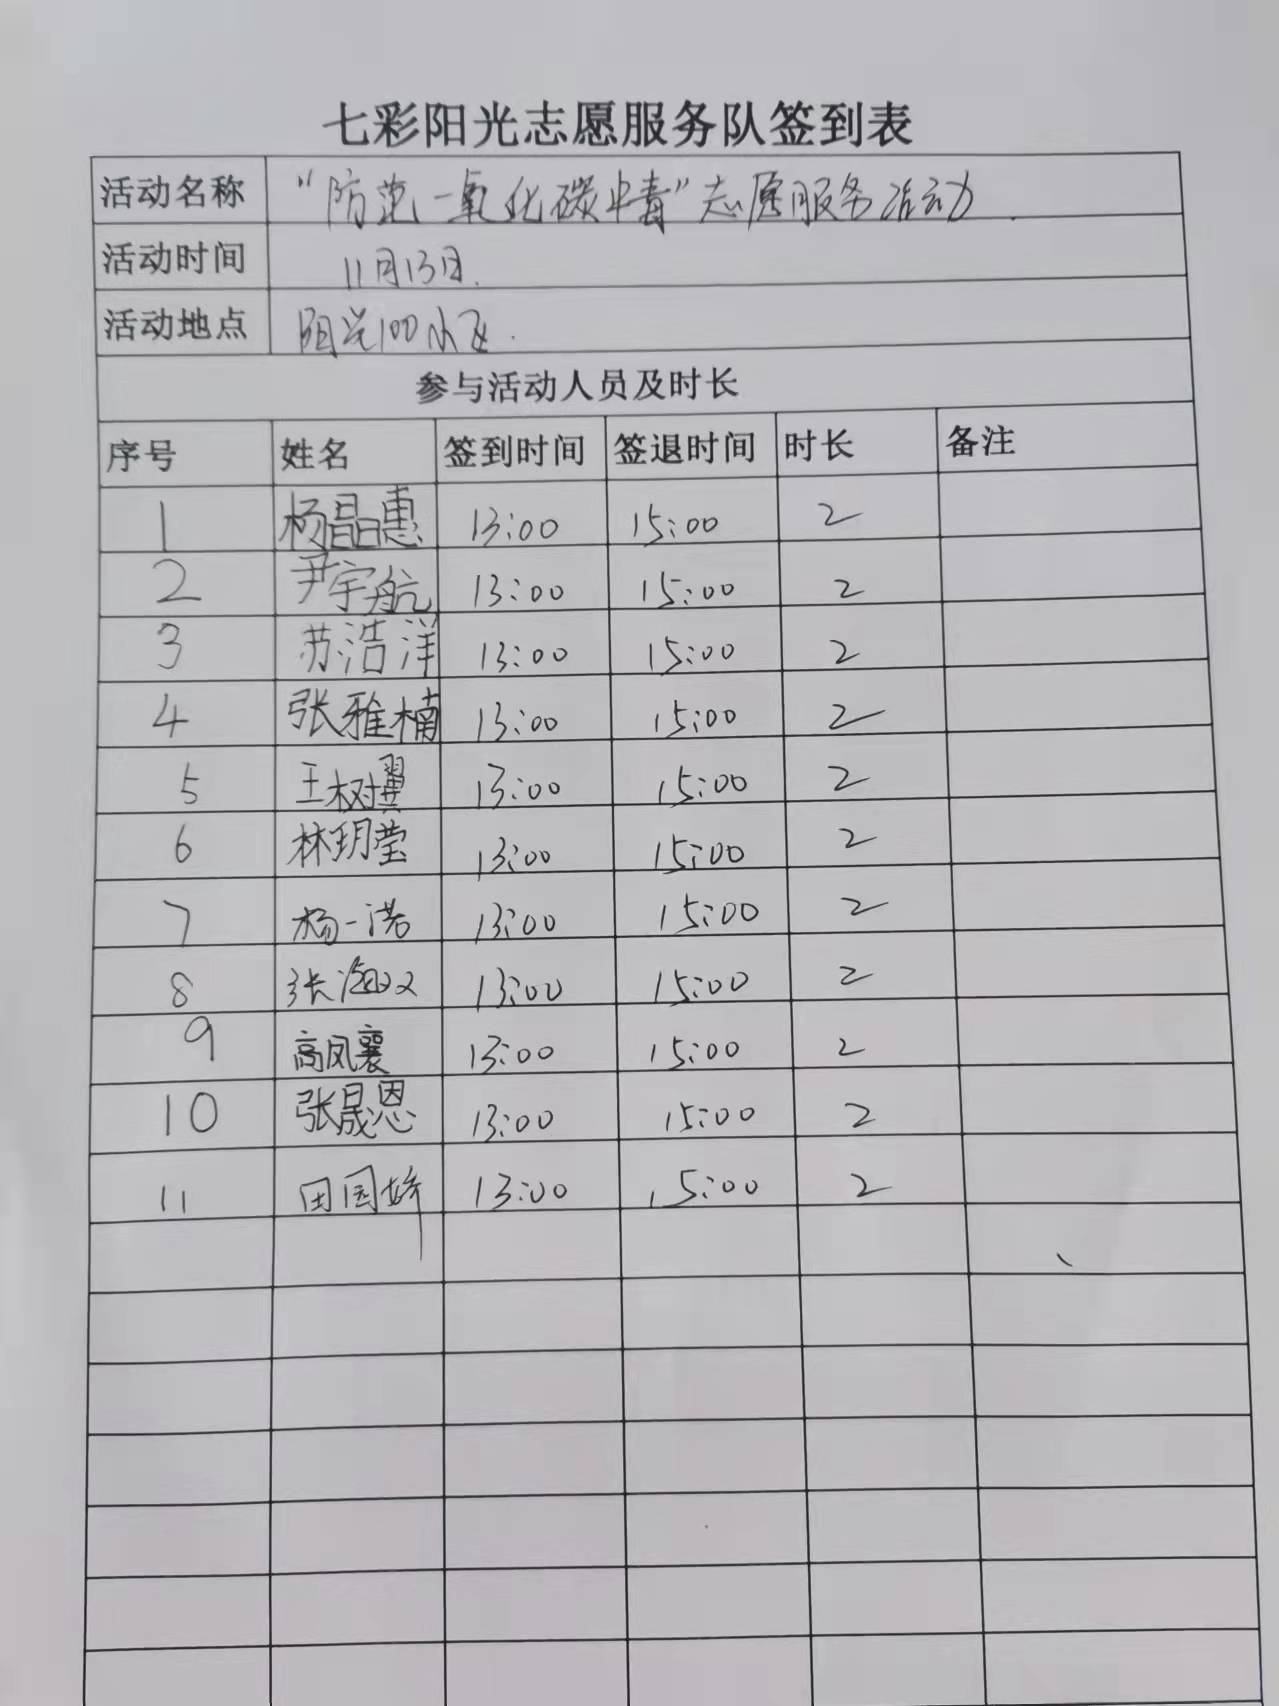 七彩阳光志愿服务队签到表
活动名称 “防范一氧化碳中毒”志愿服务活动.
活动时间 11月13日.
活动地点 阳光100小区.
参与活动人员及时长
序号 姓名 签到时间 签退时间 时长 备注
1 杨晶惠 13:00 15:00 2
2 尹宇航 13:00 15:00 2
3 苏浩洋 13:00 15:00 2
4 张雅楠 13:00 15:00 2
5 王树翼 13:00 15:00 2
6 林玥莹 13:00 15:00 2
7 杨一诺 13:00 15:00 2
8 13:00 15:00 2
9 高凤襄 13:00 15:00 2
10 张晟恩 13:00 15:00 2
11 田园娇 13:00 15:00 2